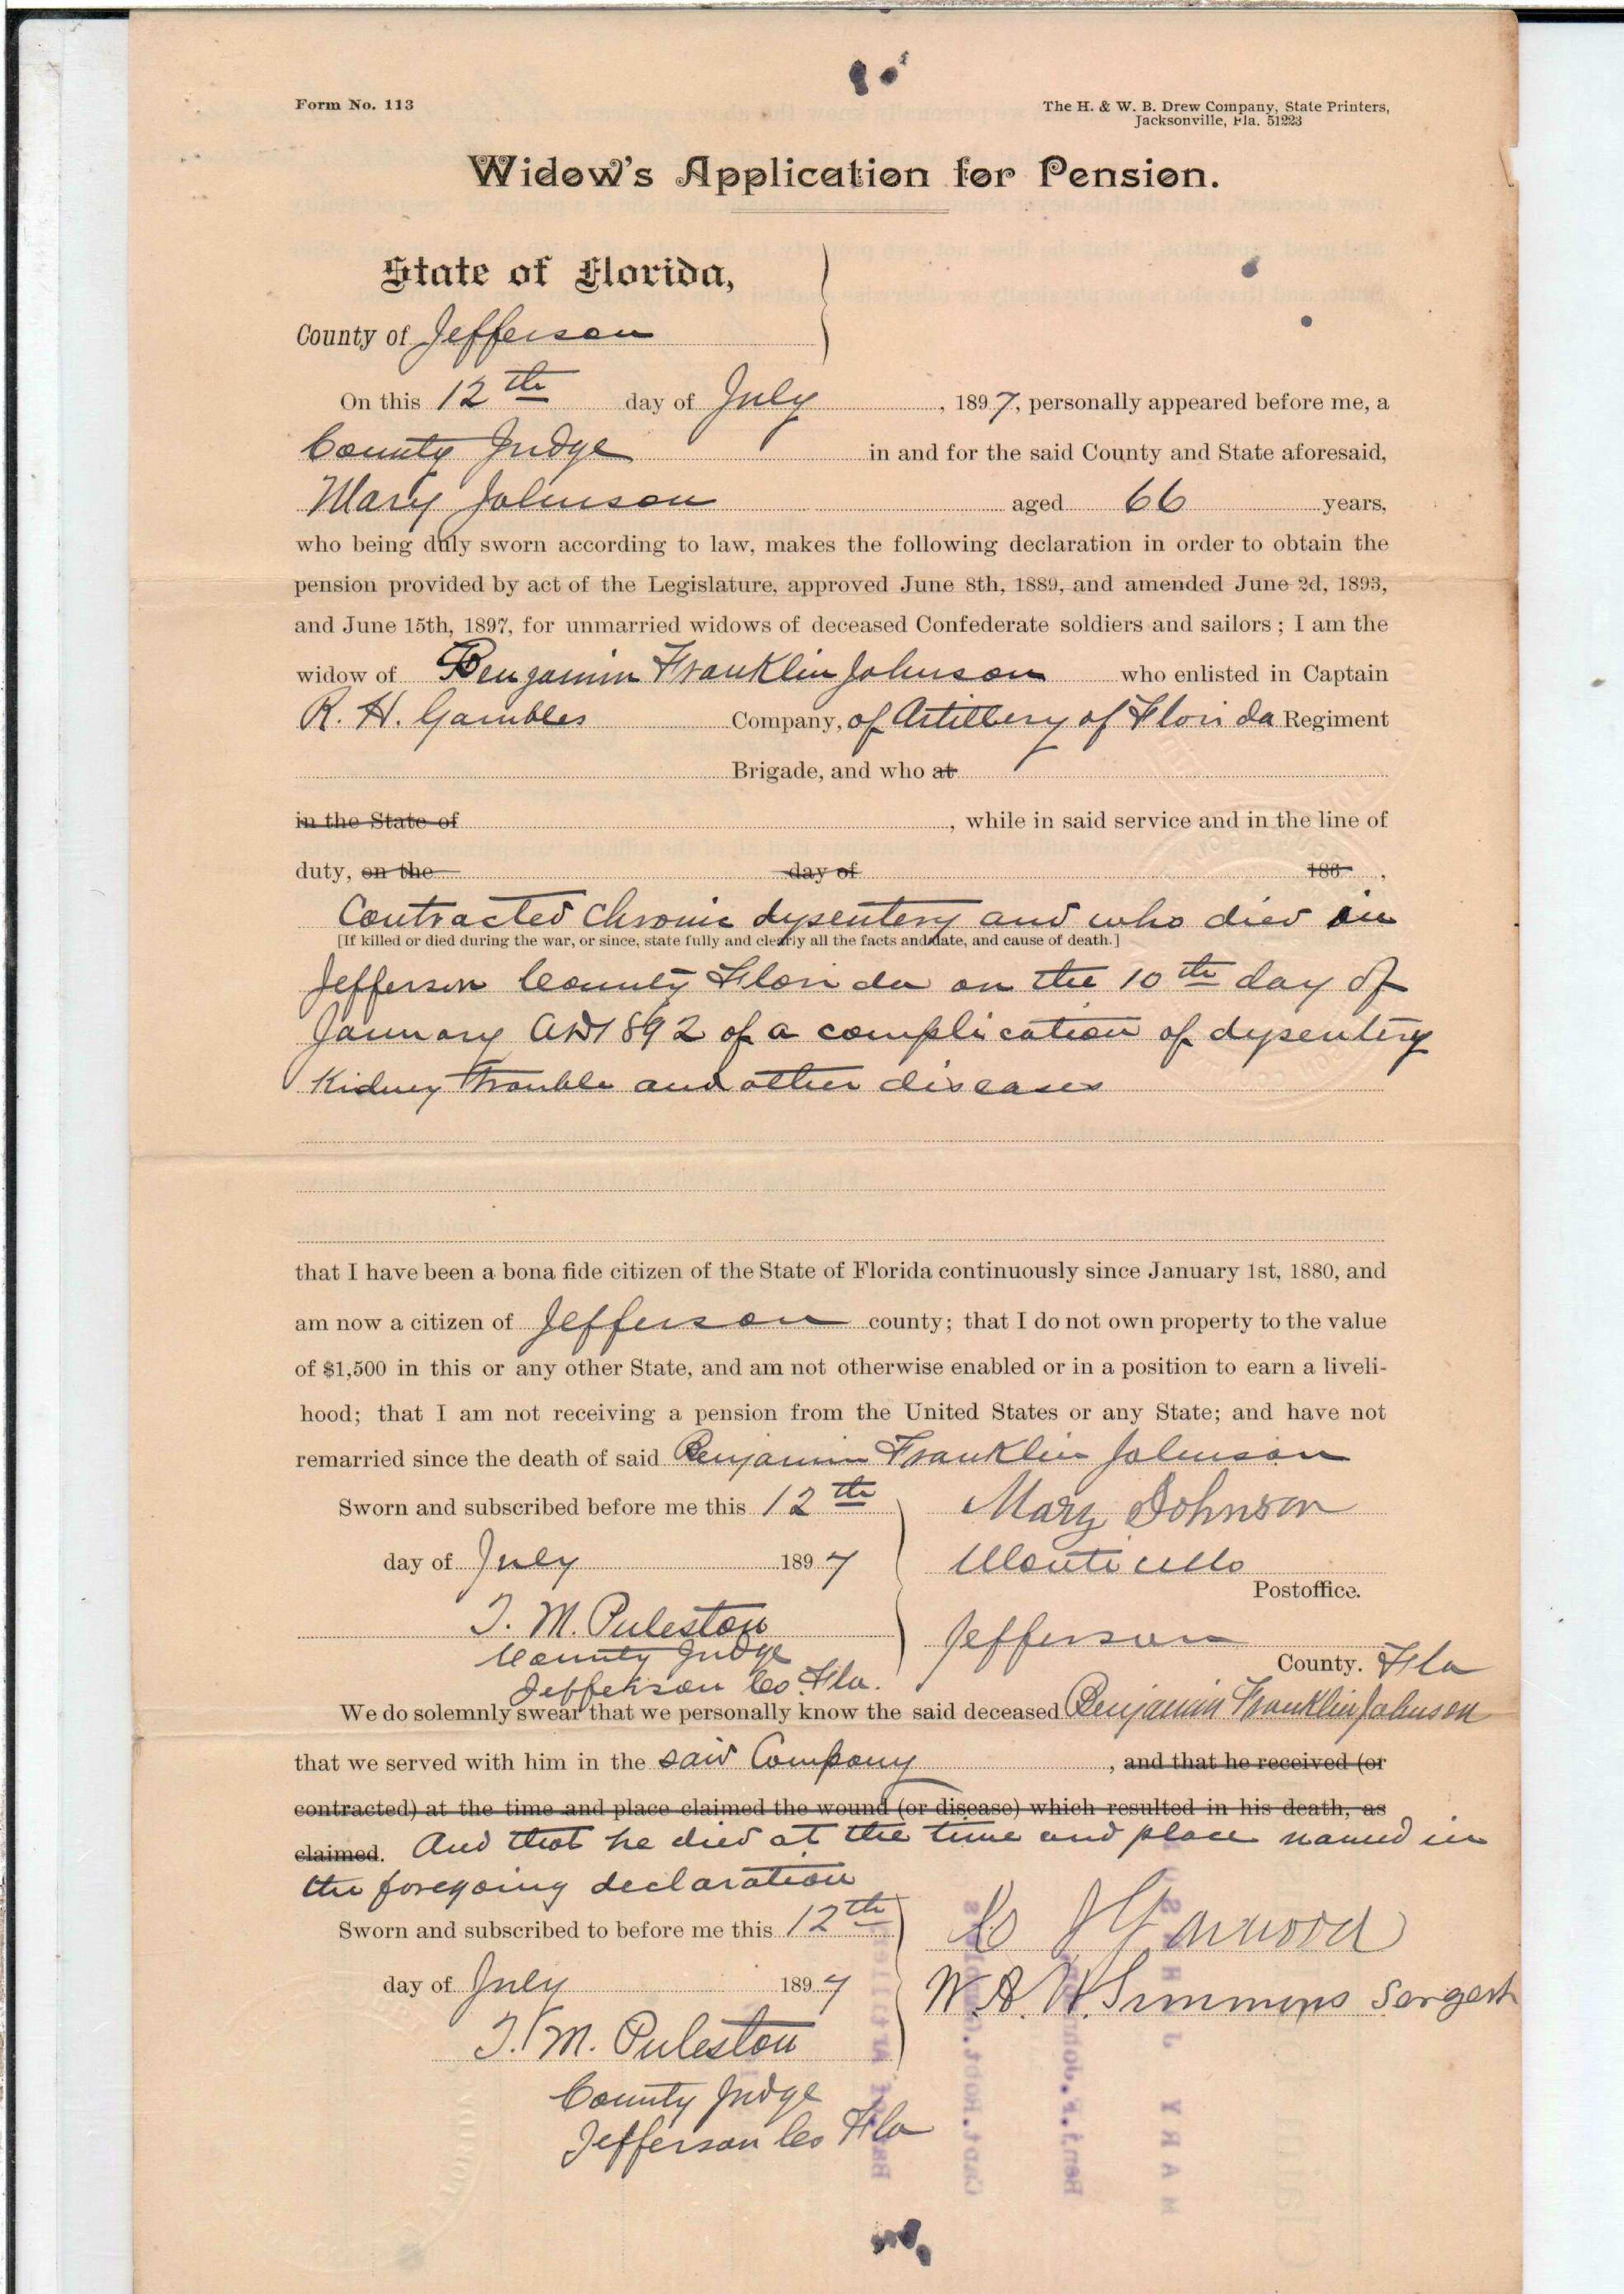 Form No. 113
The H. & W. B. Drew Company, State Printers,
Jacksonville, Fla. 51223
Widow's Application for Pension.
State of Florida,
County of Jefferson
On this 12th day of July, 1897, personally appeared before me, a
County Judge in and for the said County and State aforesaid,
Mary Johnson aged 66 years,
who being duly sworn according to law, makes the following declaration in order to obtain the
pension provided by act of the Legislature, approved June 8th, 1889, and amended June 2d, 1893,
and June 15th, 1897, for unmarried widows of deceased Confederate soldiers and sailors; I am the
widow of Benjamin Franklin Johnson who enlisted in Captain
R. H. Gambles Company, of Artillery of Florida Regiment
Brigade, and who at
in the State of , while in said service and in the line of
duty, on the day of 186 ,
Contracted Chronic dysentery and who died in
[If killed or died during the war, or since, state fully and clearly all the facts and date, and cause of death.]
Jefferson County Florida on the 10th day of
January AD 1892 of a complication of dysentery
Kidney trouble and other diseases
that I have been a bona fide citizen of the State of Florida continuously since January 1st, 1880, and
am now a citizen of Jefferson county; that I do not own property to the value
of $1,500 in this or any other State, and am not otherwise enabled or in a position to earn a liveli-
hood; that I am not receiving a pension from the United States or any State; and have not
remarried since the death of said Benjamin Franklin Johnson
Sworn and subscribed before me this 12th Mary Johnson
day of July 1897 Monticello
Postoffice.
T. M. Puleston Jefferson
County Judge County. Fla
Jefferson Co. Fla.
We do solemnly swear that we personally know the said deceased Benjamin Franklin Johnson
that we served with him in the said Company , and that he received (or
contracted) at the time and place claimed the wound (or disease) which resulted in his death, as
claimed. And that he died at the time and place named in
the foregoing declaration
Sworn and subscribed to before me this 12th
day of July 1897 W. A. W. Simmons Sargent
T. M. Puleston
County Judge
Jefferson Co Fla